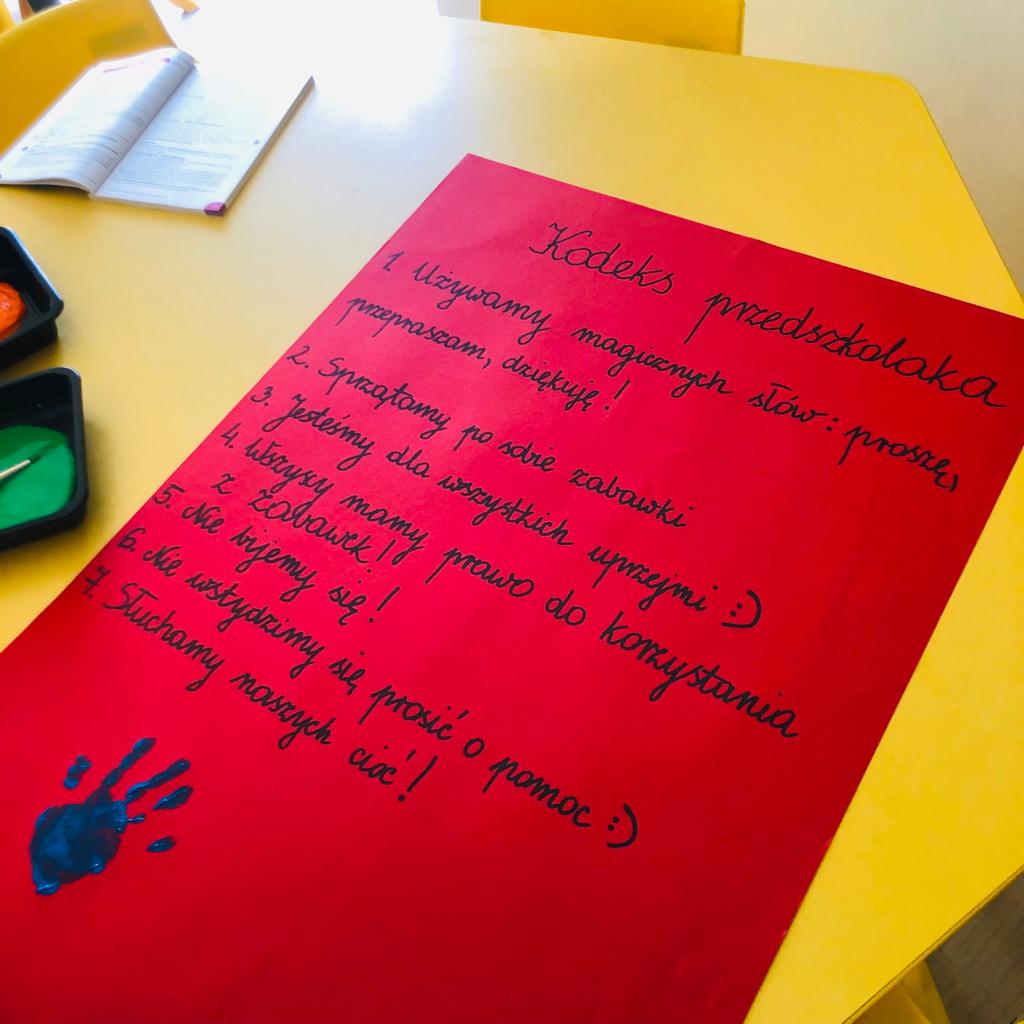 Kodeks przedszkolaka
1. Używamy magicznych słów: proszę,
przepraszam, dziękuję!
2. Sprzątamy po sobie zabawki
3. Jesteśmy dla wszystkich uprzejmi :)
4. Wszyscy mamy prawo do korzystania
z zabawek!
5. Nie bijemy się!
6. Nie wstydzimy się prosić o pomoc :)
7. Słuchamy naszych cioć!